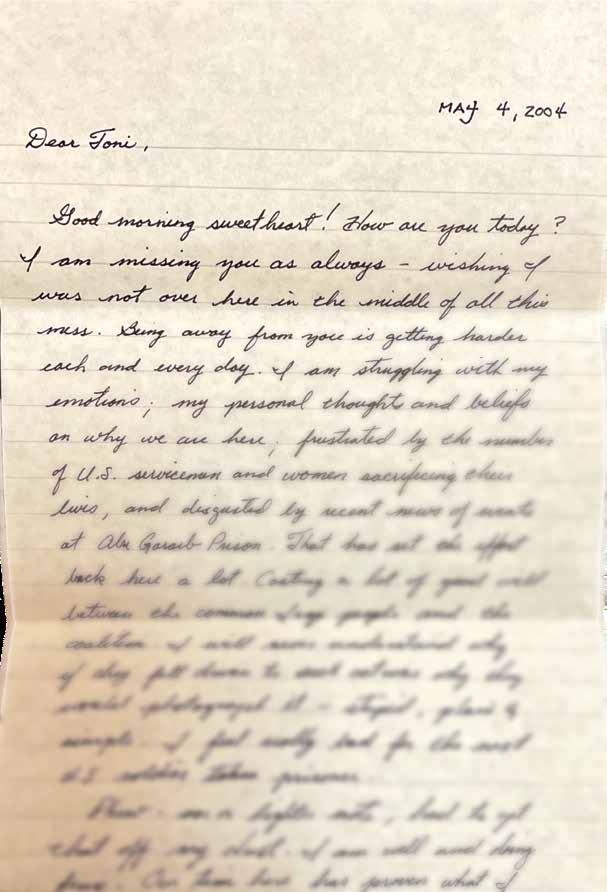 MAY 4, 2004
Dear Toni,
Good morning sweetheart! How are you today?
I am missing you as always - wishing I
was not over here in the middle of all this
mess. Being away from you is getting harder
each and every day. I am struggling with my
emotions; my personal thoughts and beliefs
on why we are here; frustrated by the number
of U.S. servicemen and women sacrificing their
lives, and disgusted by recent news of events
at Abu Garaib Prison. That has set the effort
back here a lot. Costing a lot of good will
between the common people and the
coalition. I will never understand why
if they fell down to such why they
would photograph it - stupid, plain &
simple. I feel really bad for the next
U.S. soldier taken prisoner.
on a lighter note, had to get
that off my chest. I am well and doing
fine. Our team here has proven what I